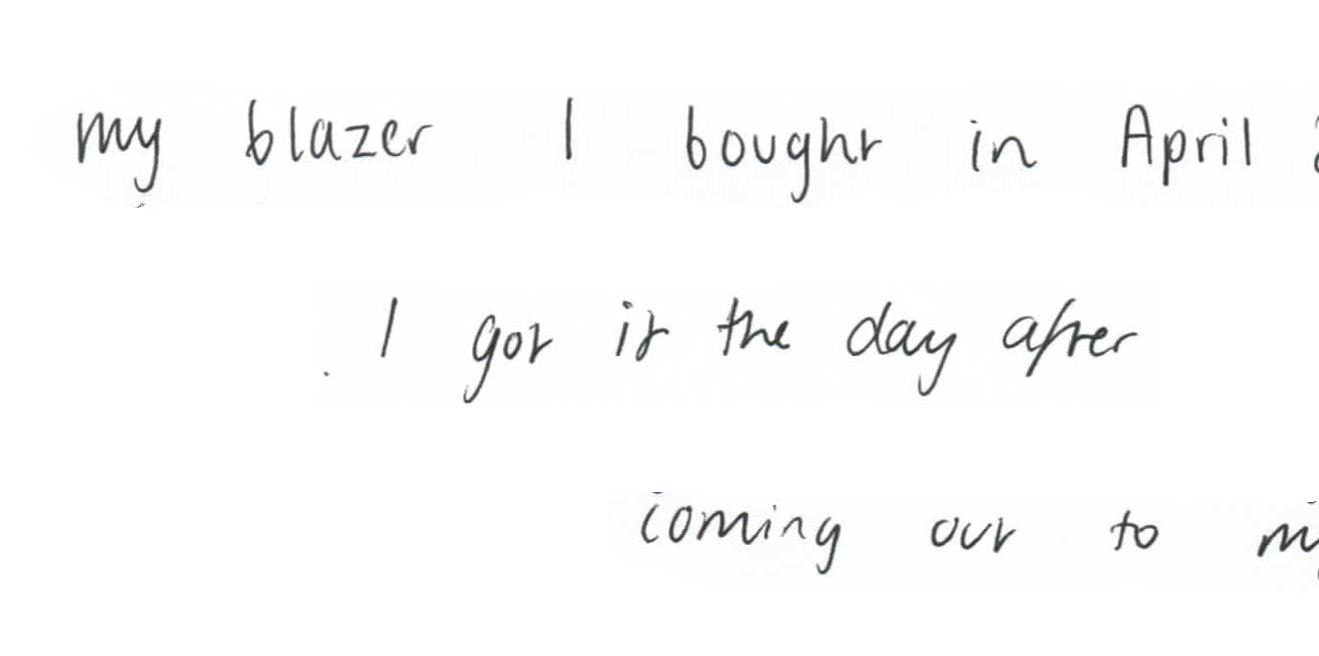 my blazer I bought in April
. I got it the day after
coming out to